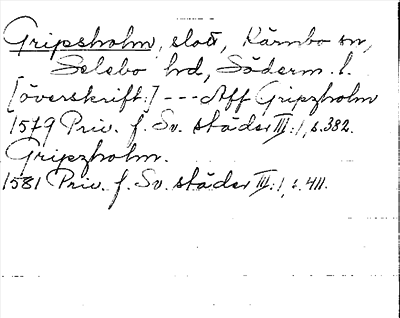 Gripsholm, slott, Kärnbo sn,
Selebo hd, Söderm. l.
[överskrift:] --- Aff Gripzholm
1579 Priv. f. Sv. städer III:1, s. 382.
Gripzholm.
1581 Priv. f. Sv. städer III:1, s. 411.